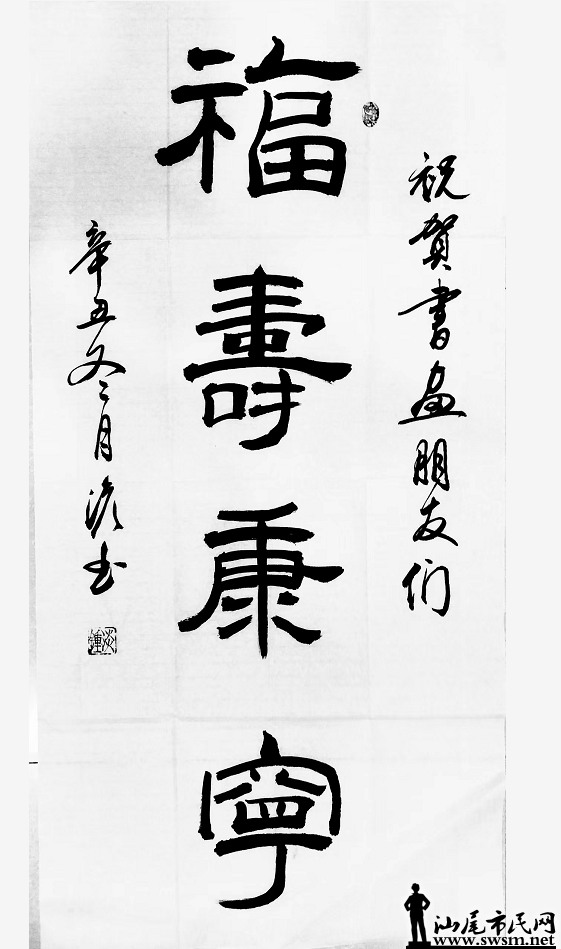 祝贺書画朋友们
福壽康寧
辛丑冬月洪書
汕尾市民网
www.swsm.net